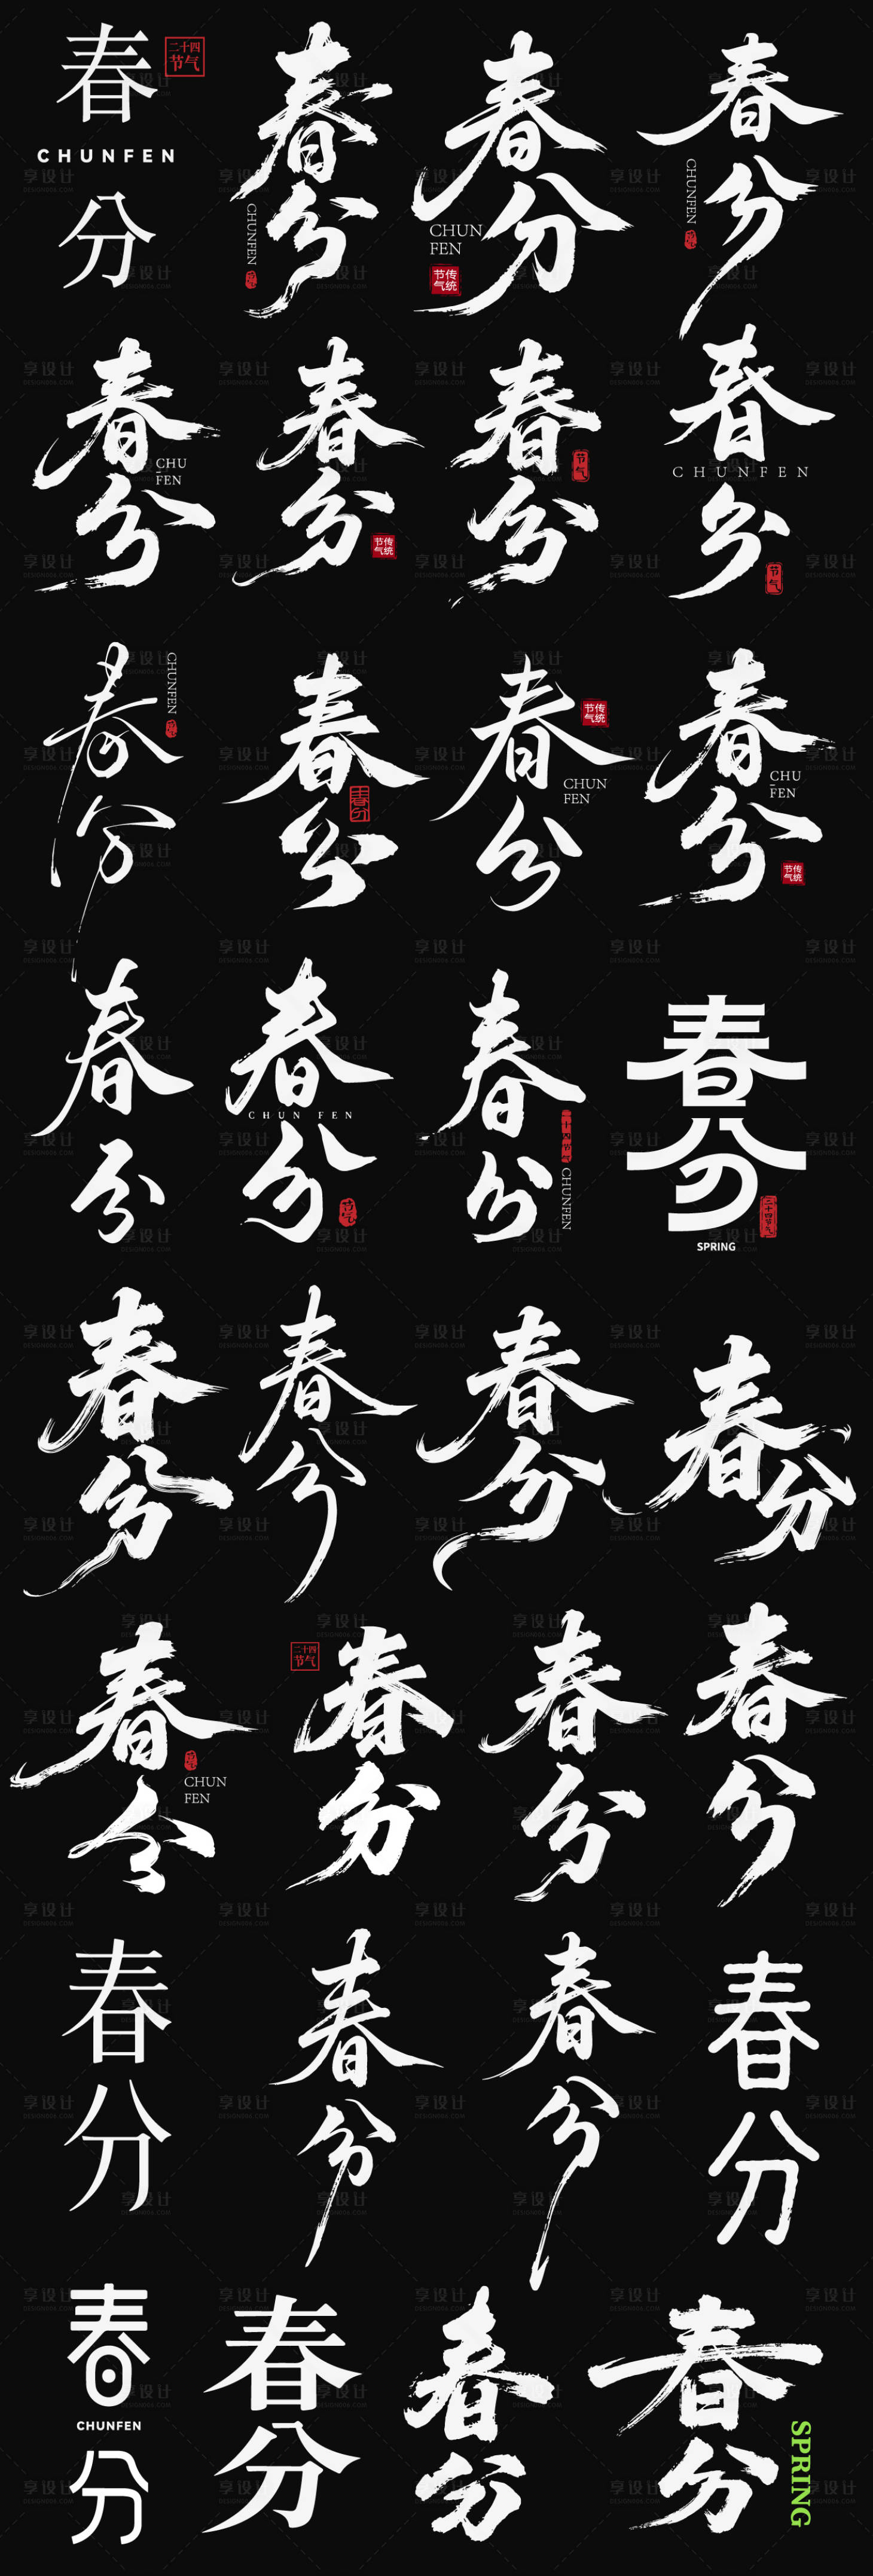 春
二十四
节气
CHUNFEN
分
春分
CHUNFEN
春分
CHUN
FEN
传统
节气
春分
CHUNFEN
春分
CHU
FEN
春分
传统
节气
春分
节气
春
CHUNFEN
分
节气
春分
CHUNFEN
春分
春分
春分
传统
节气
CHUN
FEN
春分
CHU
FEN
传统
节气
春分
春
CHUN FEN
分
节气
春分
二十四节气
CHUNFEN
春分
二十四节气
SPRING
春分
春分
春分
春分
春分
CHUN
FEN
二十四
节气
春分
春分
春分
春分
春分
春分
春分
春
CHUNFEN
分
春分
春分
春分
SPRING
享设计
DESIGN006.COM